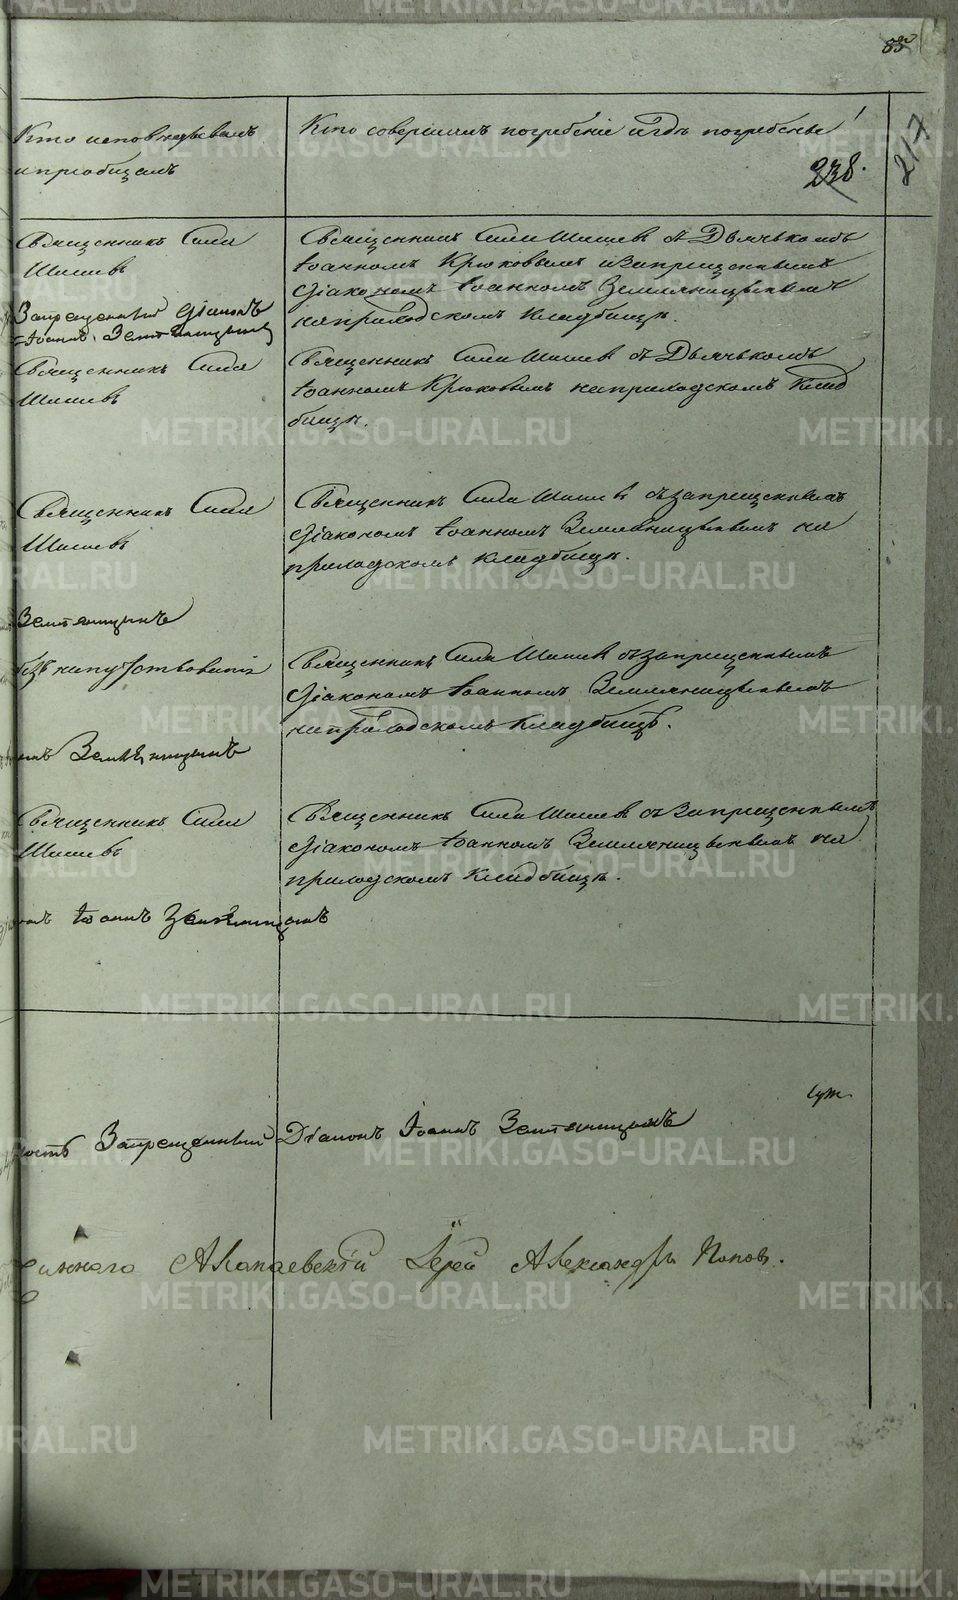 85
Кто исповѣдывалъ
и приобщалъ
Кто совершилъ погребенiе и гдѣ погребены
238.
217
Священникъ Сила
Шишевъ
Запрещенный Дiаконъ
Iоаннъ Земляницынъ
Священникъ Сила Шишевъ съ Дьячькомъ
Iоанномъ Крюковымъ и Запрещеннымъ
Дiакономъ Iоанномъ Земляницынымъ
на приходскомъ кладбищѣ.
Священникъ Сила
Шишевъ
Священникъ Сила Шишевъ съ Дьячькомъ
Iоанномъ Крюковымъ на приходскомъ клад
бищѣ.
Священникъ Сила
Шишевъ
Священникъ Сила Шишевъ съ запрещеннымъ
Дiакономъ Iоанномъ Земляницынымъ на
приходскомъ кладбищѣ.
Земляницынъ
безъ напутствованiя
Священникъ Сила Шишевъ съ запрещеннымъ
Дiакономъ Iоанномъ Земляницынымъ
на приходскомъ кладбищѣ.
Земляницынъ
Священникъ Сила
Шишевъ
Священникъ Сила Шишевъ съ Запрещеннымъ
Дiакономъ Iоанномъ Земляницынымъ на
приходскомъ кладбищѣ.
Iоаннъ Земляницынъ
Запрещенный Дiаконъ Iоаннъ Земляницынъ
Алапаевскiй Iерей Александръ Поповъ.
METRIKI.GASO-URAL.RU